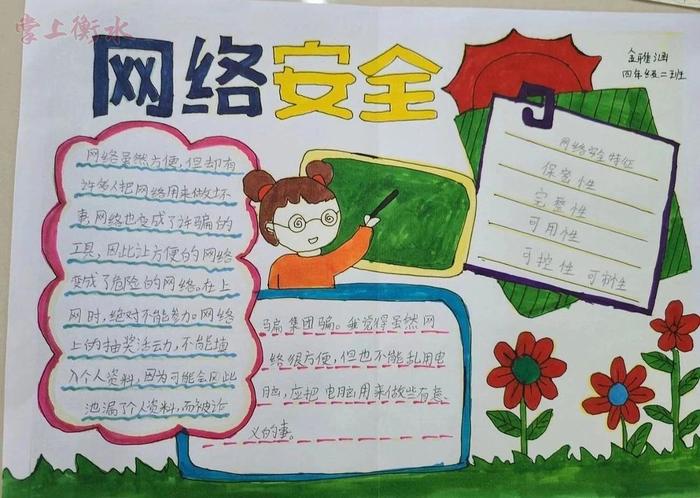 掌上衡水
网络安全
金雅涵
四年级二班
网络虽然方便，但却有
许多人把网络用来做坏
事，网络也变成了诈骗的
工具，因此让方便的网络
变成了危险的网络。在上
网时，绝对不能参加网络
上的抽奖活动，不能填
入个人资料，因为可能会因此
泄漏了个人资料，而被诈
骗集团骗。我觉得虽然网
络很方便，但也不能乱用电
脑，应把电脑用来做些有意
义的事。
网络安全特征
保密性
完整性
可用性
可控性 可审性